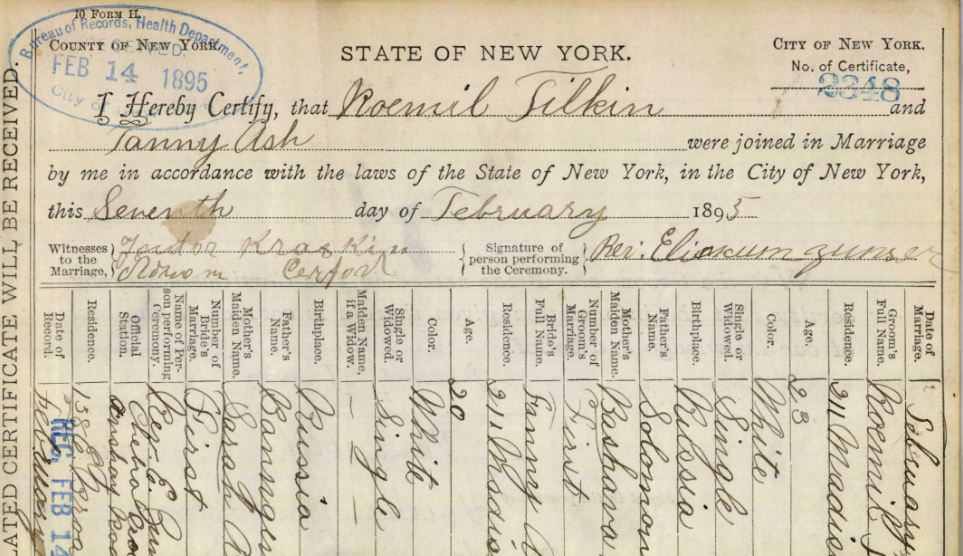 10 FORM H.
Bureau of Records, Health Department,
COUNTY OF NEW YORK.
STATE OF NEW YORK.
CITY OF NEW YORK.
FEB 14 1895
No. of Certificate,
2348
City of
I Hereby Certify, that Roemil Filkin and
Fanny Ash were joined in Marriage
by me in accordance with the laws of the State of New York, in the City of New York,
this Seventh day of February 1895
Witnesses to the Marriage,
Kraskin
Signature of person performing the Ceremony.
Rev. Eliakum Zunser
LATED CERTIFICATE WILL BE RECEIVED.
Date of Marriage. February
Groom's Full Name. Roemil
Residence. 211 Madis
Age. 23
Color. White
Single or Widowed. Single
Birthplace. Russia
Father's Name. Solomon
Mother's Maiden Name. Bashava
Number of Groom's Marriage. First
Bride's Full Name. Fanny A
Residence. 211 Madis
Age. 20
Color. White
Single or Widowed. Single
Maiden Name, if a Widow. — —
Birthplace. Russia
Father's Name.
Mother's Maiden Name. Sarah
Number of Bride's Marriage. First
Name of Person performing Ceremony. Rev. E.
Official Station.
Residence.
Date of Record.
REC. FEB 14